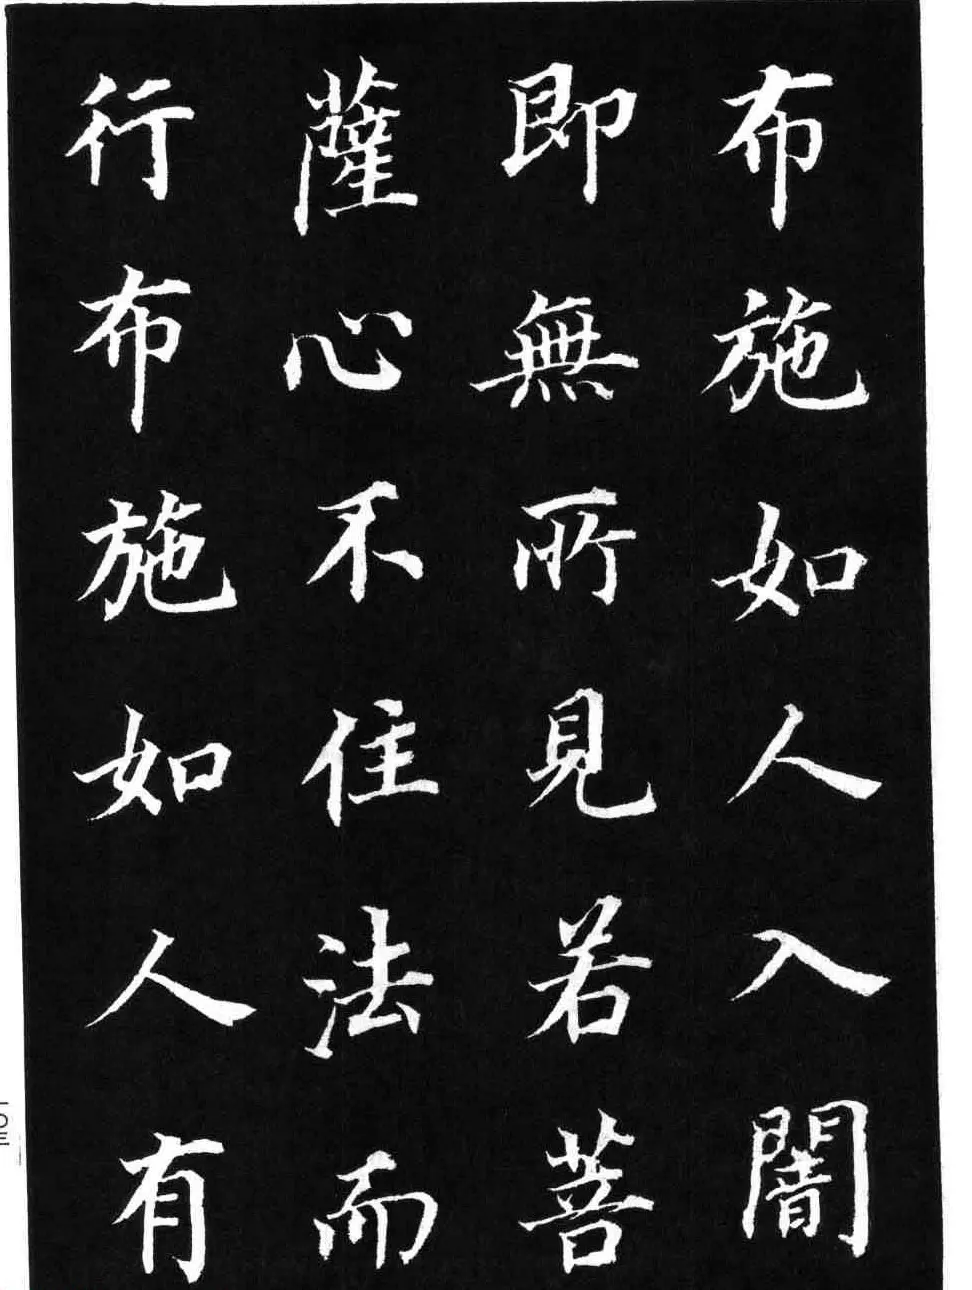 布施如人入闇
即無所見若菩
薩心不住法而
行布施如人有